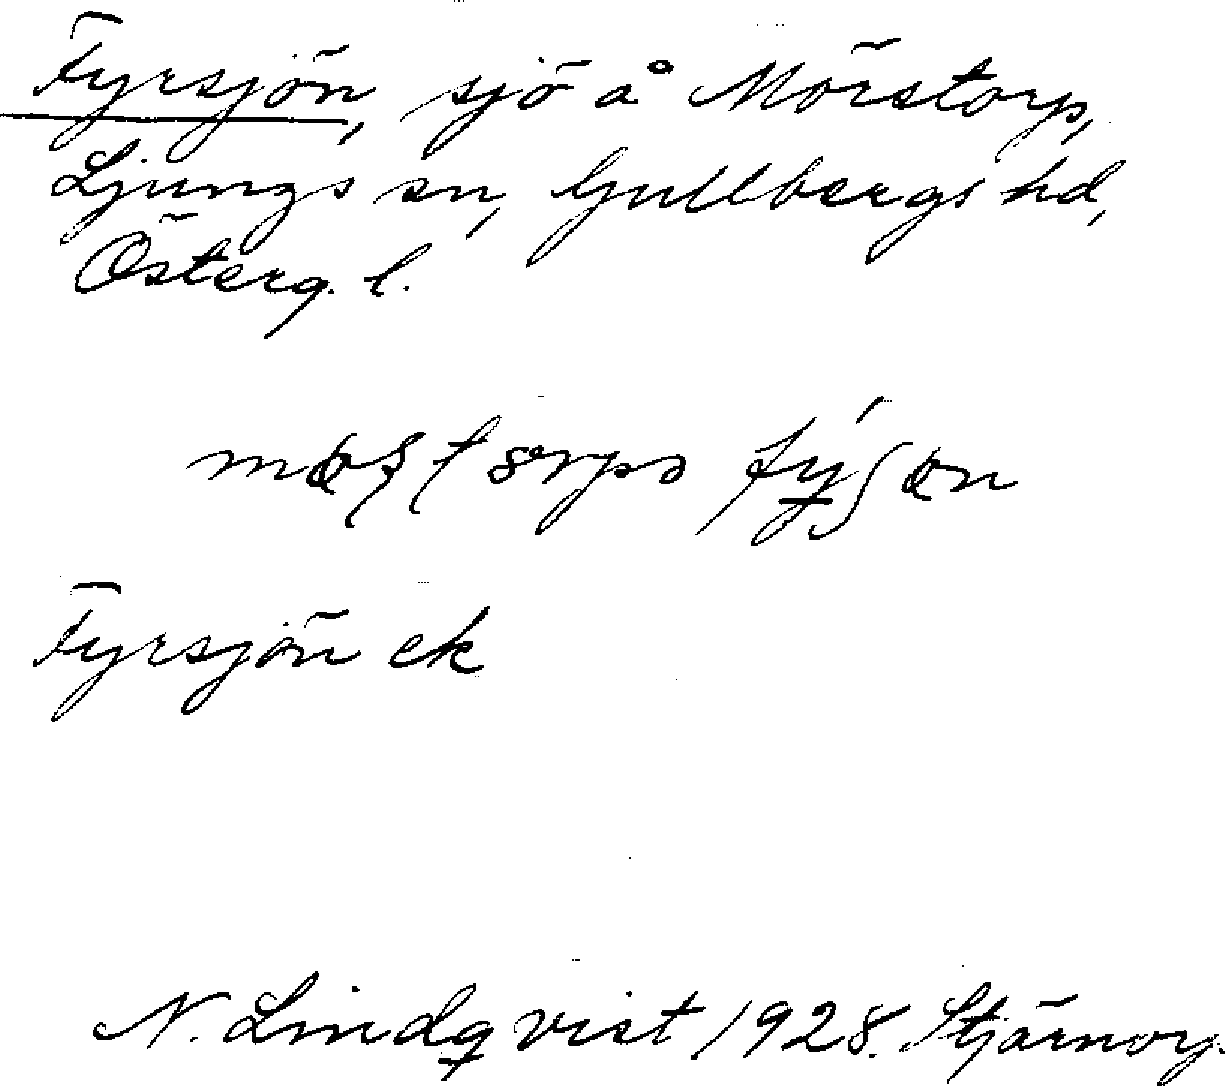 Fyrsjön, sjö å Mörstorp,
Ljungs sn, Gullbergs hd,
Österg. l.
Fyrsjön ek
N. Lindqvist 1928. Stjärnorp.